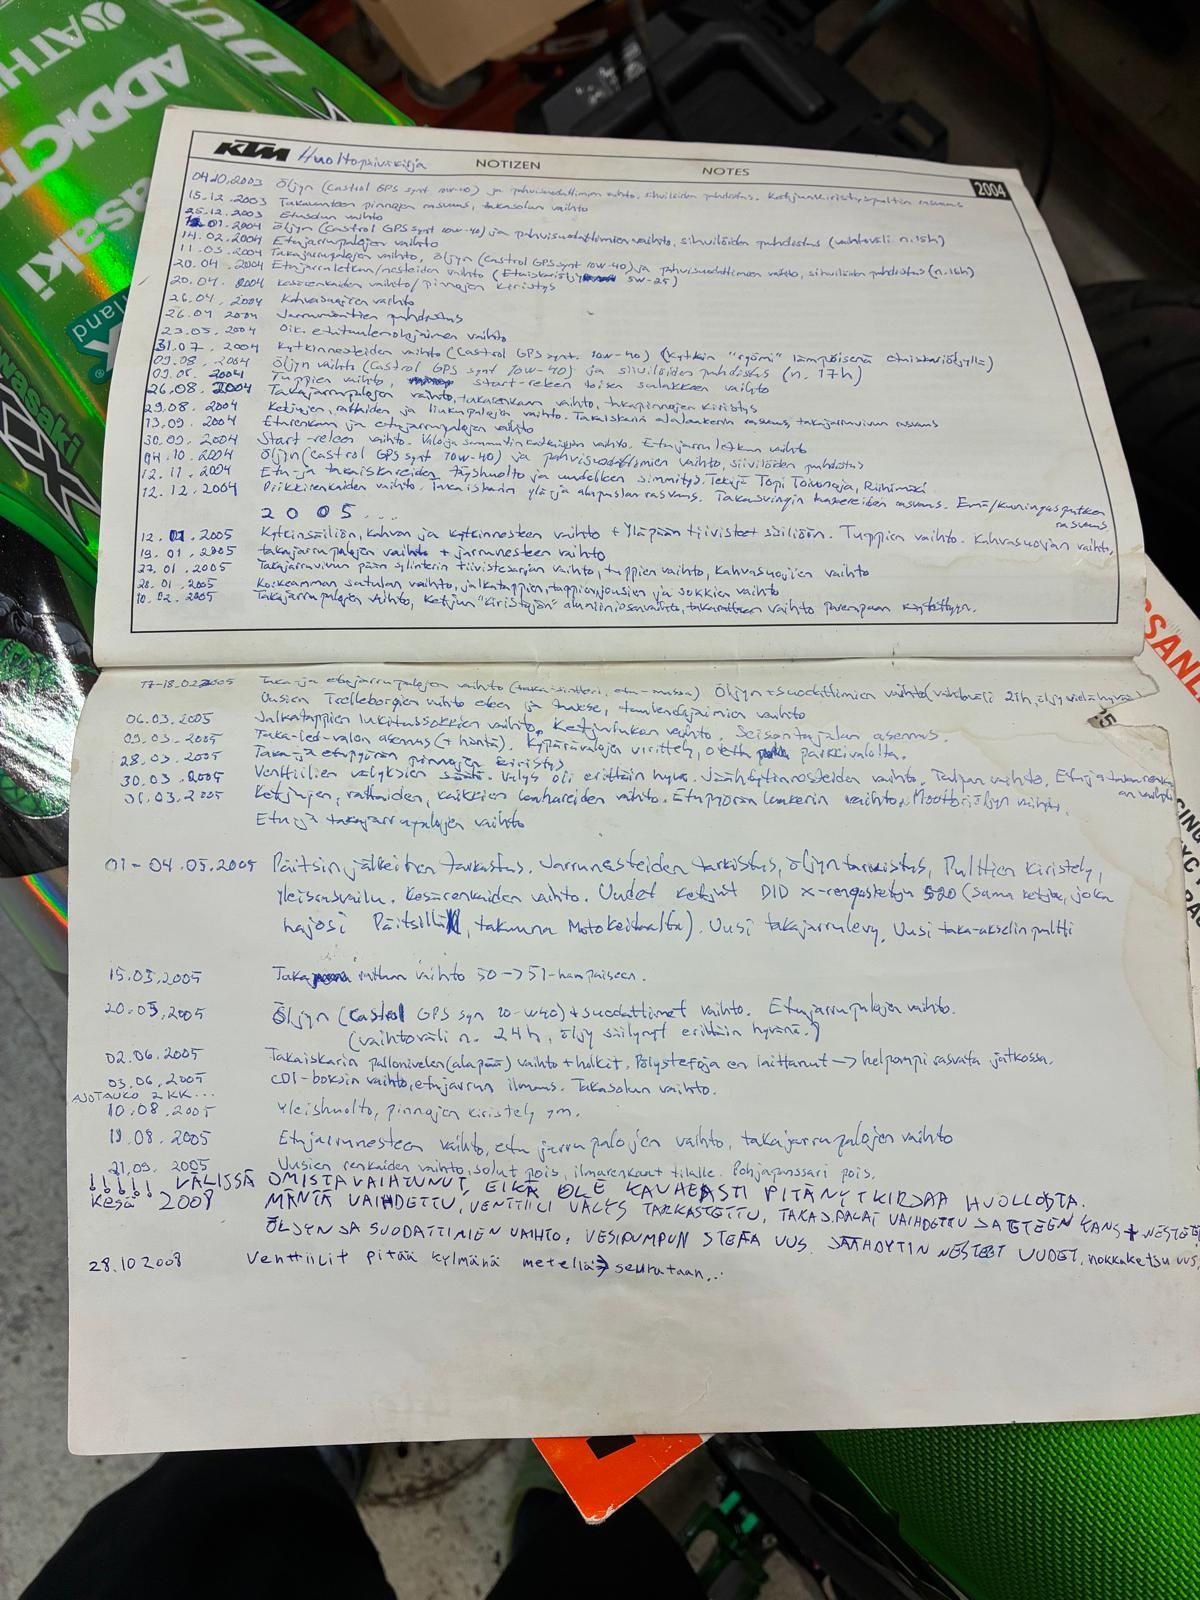 KTM Huoltopäiväkirja NOTIZEN NOTES 2004
04.10.2003 Öljyn (Castrol GPS synt 10W-40) ja pahvisuodattimien vaihto, sihvilöiden puhdistus. Ketjunkiristyspulttien rasvaus
15.12.2003 Takavanteen pinnojen rasvaus, takasolun vaihto
25.12.2003 Etusolun vaihto
01.2004 Öljyn (Castrol GPS synt 10W-40) ja pahvisuodattimien vaihto, sihvilöiden puhdistus (vaihtoväli n. 15h)
14.02.2004 Etujarrupalojen vaihto
11.03.2004 Takajarrupalojen vaihto, öljyn (Castrol GPS synt 10W-40) ja pahvisuodattimien vaihto, sihvilöiden puhdistus (n. 15h)
20.04.2004 Etujarruletkun/nesteiden vaihto (Etuiskariöljy 5W-25)
20.04.2004 kesärenkaiden vaihto/pinnojen kiristys
26.04.2004 Kahvasuojien vaihto
26.04.2004 Jarrumäntien puhdistus
23.05.2004 Oik. etutuulenohjaimen vaihto
31.07.2004 Kytkinnesteiden vaihto (Castrol GPS synt. 10W-40) (kytkin "ryömi" lämpöisenä etuiskariöljyllä)
09.08.2004 Öljyn vaihto (Castrol GPS synt 10W-40) ja siivilöiden puhdistus (n. 17h)
09.08.2004 Tuppien vaihto, start-releen toisen sulakkeen vaihto
26.08.2004 Takajarrupalojen vaihto, takarenkaan vaihto, takapinnojen kiristys
29.08.2004 Ketjujen, rattaiden ja liukupalojen vaihto. Takaiskarin alalaakerin rasvaus, takajarruvivun rasvaus
13.09.2004 Eturenkaan ja etujarrupalojen vaihto
30.09.2004 Start-releen vaihto. Valo ja sammutinkatkaisijan vaihto. Etujarruletkun vaihto
04.10.2004 Öljyn (Castrol GPS synt 10W-40) ja pahvisuodattimien vaihto, siivilöiden puhdistus
12.11.2004 Etu- ja takaiskareiden täyshuolto ja uudelleen shimmitys. Tekijä Topi Toivonoja, Riihimäki
12.12.2004 Piikkirenkaiden vaihto. Takaiskarin ylä ja alapuslan rasvaus. Takaswingin laakereiden rasvaus. Emä/kuningasputken
rasvaus
2005...
12.01.2005 Kytkinsäiliön, kahvan ja kytkinnesteen vaihto + Yläpään tiivisteet säiliöön. Tuppien vaihto. Kahvasuojan vaihto,
19.01.2005 takajarrupalojen vaihto + jarrunesteen vaihto
27.01.2005 Takajarruvivun pään sylinterin tiivistesarjan vaihto, tuppien vaihto, kahvasuojien vaihto
28.01.2005 Korkeamman satulan vaihto, jalkatappien, tappien jousien ja sokkien vaihto
10.02.2005 Takajarrupalojen vaihto, Ketjun "kiristäjän" alumiiniosa vaihto, takarattaan vaihto parempaan käytettyyn.
17-18.02.2005 Taka- ja etujarrupalojen vaihto (taka-sintteri, etu-massa) Öljyn + suodattimien vaihto (vaihtoväli 21h, öljy vielä hyvää)
Uusien Trelleborgien vaihto eteen ja taakse, tuulenohjaimien vaihto
06.03.2005 Jalkatappien lukitussokkien vaihto. Ketjulukon vaihto. Seisontajalan asennus.
09.03.2005 Taka-led-valon asennus (+ häntä). Kypärävalojen viritttely, otettu parkkivalolta.
28.03.2005 Taka- ja etupyörän pinnojen kiristys
30.03.2005 Venttiilien välyksien säätö. Välys oli erittäin hyvä. Jäähdytinnesteiden vaihto. Tulpan vaihto. Etu ja takarenkaan vaihto
31.03.2005 Ketjujen, rattaiden, kaikkien laakereiden vaihto. Etupyörän laakerin vaihto. Moottoriöljyn vaihto.
Etu ja takajarrupalojen vaihto
01-04.05.2005 Päitsin jälkeinen tarkastus. Jarrunesteiden tarkistus, öljyn tarkistus, Pulttien kiristely,
yleisrasvailu. Kesärenkaiden vaihto. Uudet ketjut DID x-rengastetju 520 (sama ketju, joka
hajosi Päitsillä, takuuna Motokeitaalta). Uusi takajarrulevy, Uusi taka-akselin pultti
15.05.2005 Taka rattaan vaihto 50->51-hampaiseen.
20.05.2005 Öljyn (Castrol GPS syn 10-W40) + suodattimet vaihto. Etujarrupalojen vaihto.
(vaihtoväli n. 24h, öljy säilynyt erittäin hyvänä.)
02.06.2005 Takaiskarin pallonivelen (alapää) vaihto + holkit. Pölystefoja en laittanut -> helpompi rasvata jatkossa.
03.06.2005 CDI-boksin vaihto, etujarrun ilmaus. Takasolun vaihto.
AJOTAUKO 2KK...
10.08.2005 Yleishuolto, pinnojen kiristely ym.
19.08.2005 Etujarrunesteen vaihto, etujarrupalojen vaihto, takajarrupalojen vaihto
21.09.2005 Uusien renkaiden vaihto, solut pois, ilmarenkaat tilalle. Pohjapanssari pois.
!!!!! VÄLISSÄ OMISTAVAIHTUNUT, EIKÄ OLE KAUHEASTI PITÄNYT KIRJAA HUOLLOSTA.
Kesä 2008 MÄNTÄ VAIHDETTU, VENTTIILI VÄLYS TARKASTETTU, TAKAJ.PALAT VAIHDETTU JA ETEEN KANS + NESTEET
ÖLJYN JA SUODATTIMIEN VAIHTO, VESIPUMPUN STEFA UUS. JÄÄHDYTIN NESTEET UUDET, nokkaketju uus,
28.10 2008 Venttiilit pitää kylmänä meteliä -> seurataan...